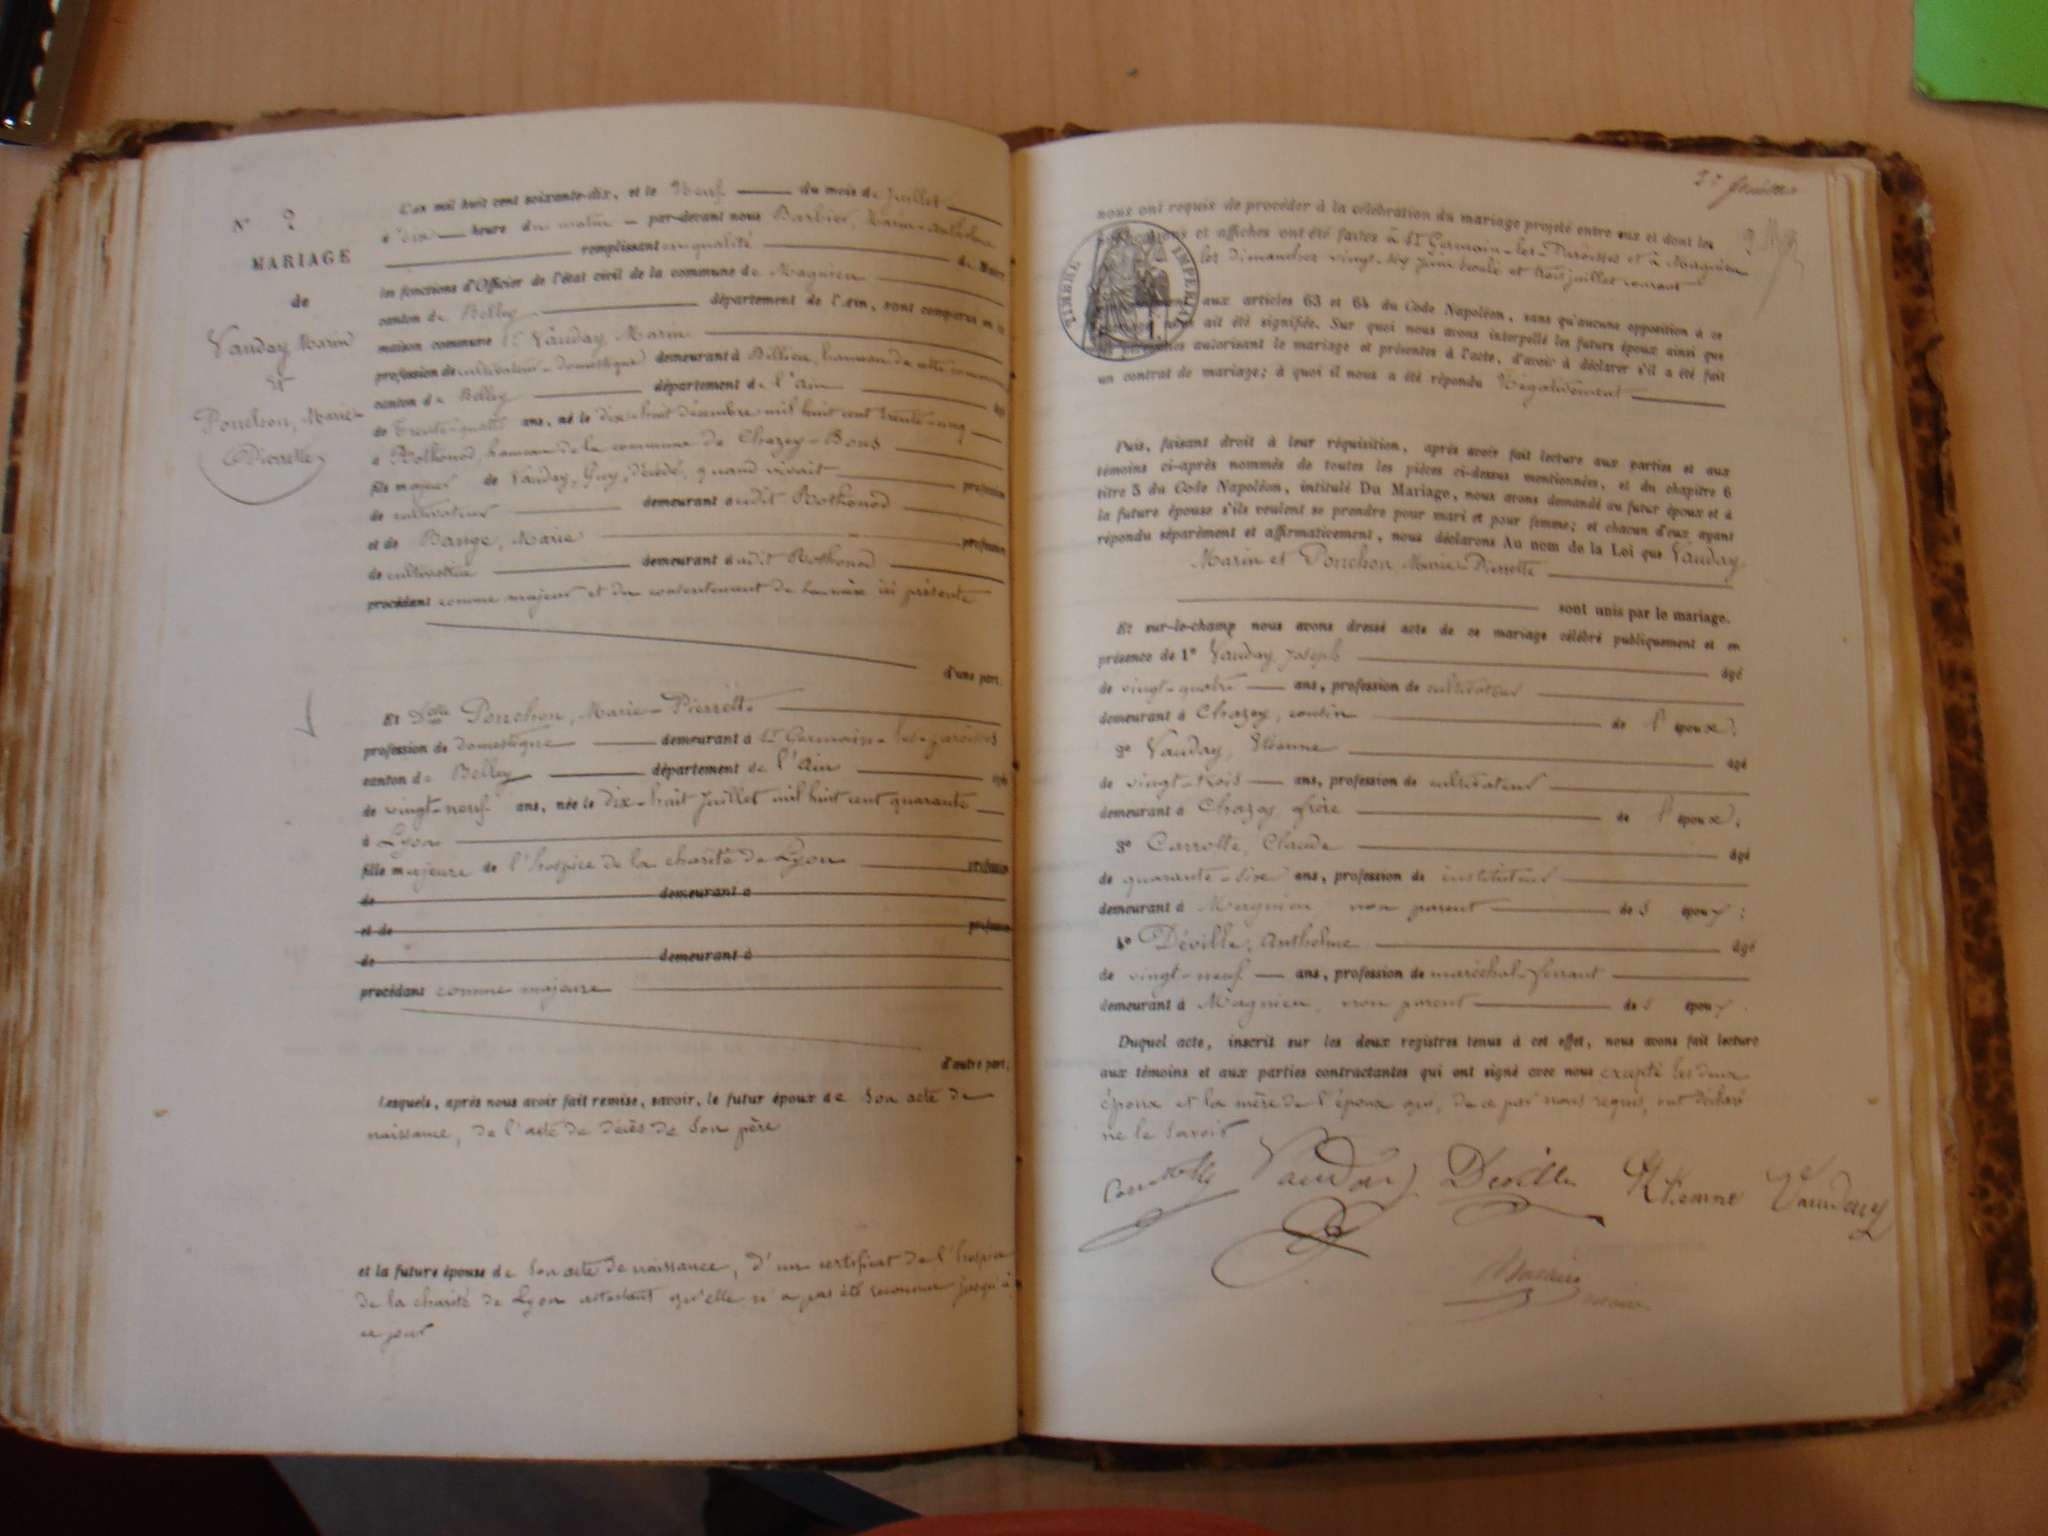 N° 2
MARIAGE
de
Vauday, Marin
et
Ponchon, Marie-
Pierrette
L'an mil huit cent soixante-dix, et le Neuf du mois de Juillet
à dix heure du matin par-devant nous Barbier, Marin-Anthelme
remplissant en qualité de Maire
les fonctions d'Officier de l'état civil de la commune de Magnieu
canton de Belley département de l'Ain, sont comparus en la
maison commune Vauday, Marin
profession de cultivateur-domestique demeurant à Billieu, hameau de cette commune
canton de Belley département de l'Ain âgé
de trente-quatre ans, né le dix-huit décembre mil huit cent trente-cinq
à Rothonod, hameau de la commune de Chazey-Bons
fils majeur de Vauday, Guy, décédé, quand vivait profession
de cultivateur demeurant audit Rothonod
et de Barge, Marie profession
de cultivatrice demeurant audit Rothonod
procédant comme majeur et du consentement de sa mère ici présente
d'une part.
Et Delle Ponchon, Marie-Pierrette
profession de domestique demeurant à St Germain-les-paroisses
canton de Belley département de l'Ain âgée
de vingt-neuf ans, née le dix-huit Juillet mil huit cent quarante
à Lyon
fille majeure de l'hospice de la charité de Lyon profession
de demeurant à
et de profession
de demeurant à
procédant comme majeure
d'autre part.
Lesquels, après nous avoir fait remise, savoir, le futur époux de son acte de
naissance, de l'acte de décès de son père
et la future épouse de son acte de naissance, d'un certificat de l'hospice
de la charité de Lyon attestant qu'elle n'a pas été reconnue jusqu'à
ce jour
nous ont requis de procéder à la célébration du mariage projeté entre eux et dont les
et affiches ont été faites à St Germain-les-Paroisses et à Magnieu
les dimanches vingt-six juin écoulé et trois juillet courant
TIMBRE IMPERIAL
aux articles 63 et 64 du Code Napoléon, sans qu'aucune opposition à ce
ait été signifiée. Sur quoi nous avons interpellé les futurs époux ainsi que
autorisant le mariage et présentes à l'acte, d'avoir à déclarer s'il a été fait
un contrat de mariage; à quoi il nous a été répondu Négativement
Puis, faisant droit à leur réquisition, après avoir fait lecture aux parties et aux
témoins ci-après nommés de toutes les pièces ci-dessus mentionnées, et du chapitre 6
titre 5 du Code Napoléon, intitulé Du Mariage, nous avons demandé au futur époux et à
la future épouse s'ils veulent se prendre pour mari et pour femme; et chacun d'eux ayant
répondu séparément et affirmativement, nous déclarons Au nom de la Loi que Vauday
Marin et Ponchon, Marie-Pierrette
sont unis par le mariage.
Et sur-le-champ nous avons dressé acte de ce mariage célébré publiquement et en
présence de 1° Vauday Joseph âgé
de vingt-quatre ans, profession de cultivateur
demeurant à Chazey, cousin de l'époux;
2° Vauday, Etienne âgé
de vingt-trois ans, profession de cultivateur
demeurant à Chazey, frère de l'époux;
3° Carrotte, Claude âgé
de quarante-six ans, profession de instituteur
demeurant à Magnieu, non parent des époux;
4° Déville, Anthelme âgé
de vingt-neuf ans, profession de maréchal-ferrant
demeurant à Magnieu, non parent des époux.
Duquel acte, inscrit sur les deux registres tenus à cet effet, nous avons fait lecture
aux témoins et aux parties contractantes qui ont signé avec nous excepté les deux
époux et la mère de l'époux qui, de ce par nous requis, ont déclaré
ne le savoir
Vauday Deville Etienne Vauday
Maire